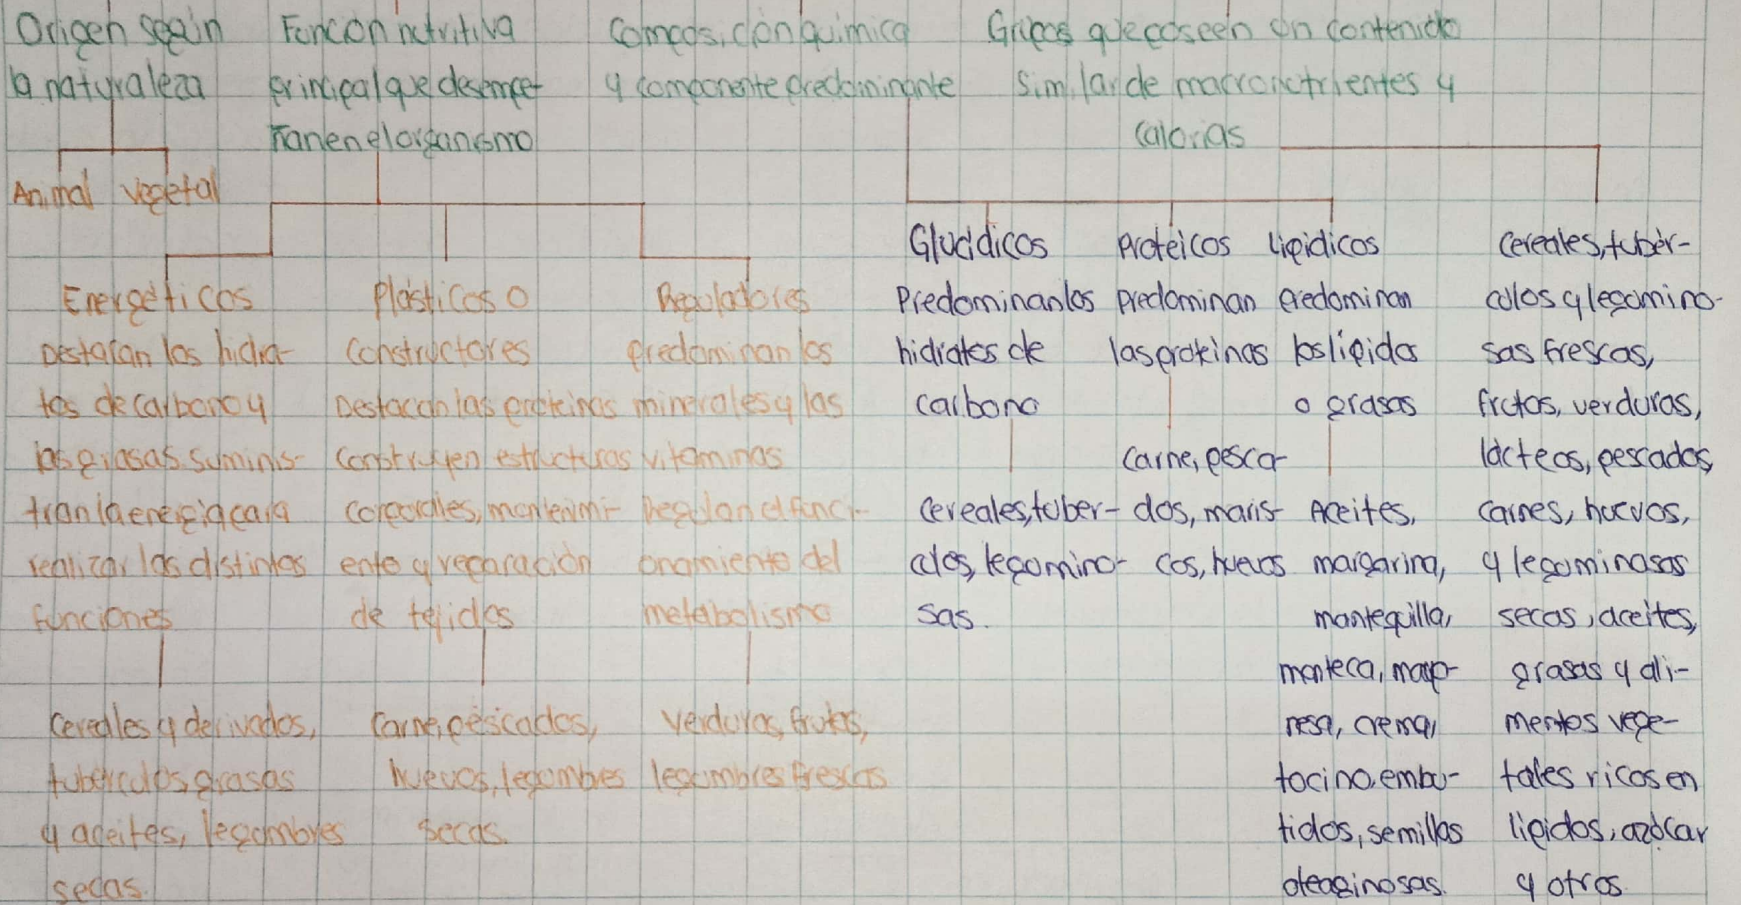 Origen según
la naturaleza
Animal vegetal
Función nutritiva
principal que desempe-
ñan en el organismo
Energéticos
Destacan los hidra-
tos de carbono y
las grasas. suminis-
tran la energia para
realizar las distintas
funciones
Cereales y derivados,
tubérculos, grasas
y aceites, legumbres
secas.
Plásticos o
Constructores
Destacan las proteinas
Construyen estructuras
corporales, mantenimi-
ento y reparación
de tejidos
Carne, pescados,
huevos, legumbres
secas.
Reguladores
predominan los
minerales y las
vitaminas
Regulan el funci-
onamiento del
metabolismo
verduras, frutas,
legumbres frescas
Composición quimica
y componente predominante
Glucidicos
Predominan los
hidratos de
carbono
Cereales, tuber-
culos, legumino-
sas.
Proteicos
Predominan
las proteinas
Carne, pesca-
dos, maris-
cos, huevos
Lipidicos
predominan
los lipidos
o grasas
Aceites,
margarina,
mantequilla,
manteca, mayo-
nesa, crema,
tocino, embu-
tidos, semillas
oleaginosas.
Grupos que poseen un contenido
similar de macronutrientes y
calorias
Cereales, tubér-
culos y legumino-
sas frescas,
frutas, verduras,
lácteos, pescados,
carnes, huevos,
y leguminosas
secas, aceites,
grasas y ali-
mentos vege-
tales ricos en
lipidos, azúcar
y otros.